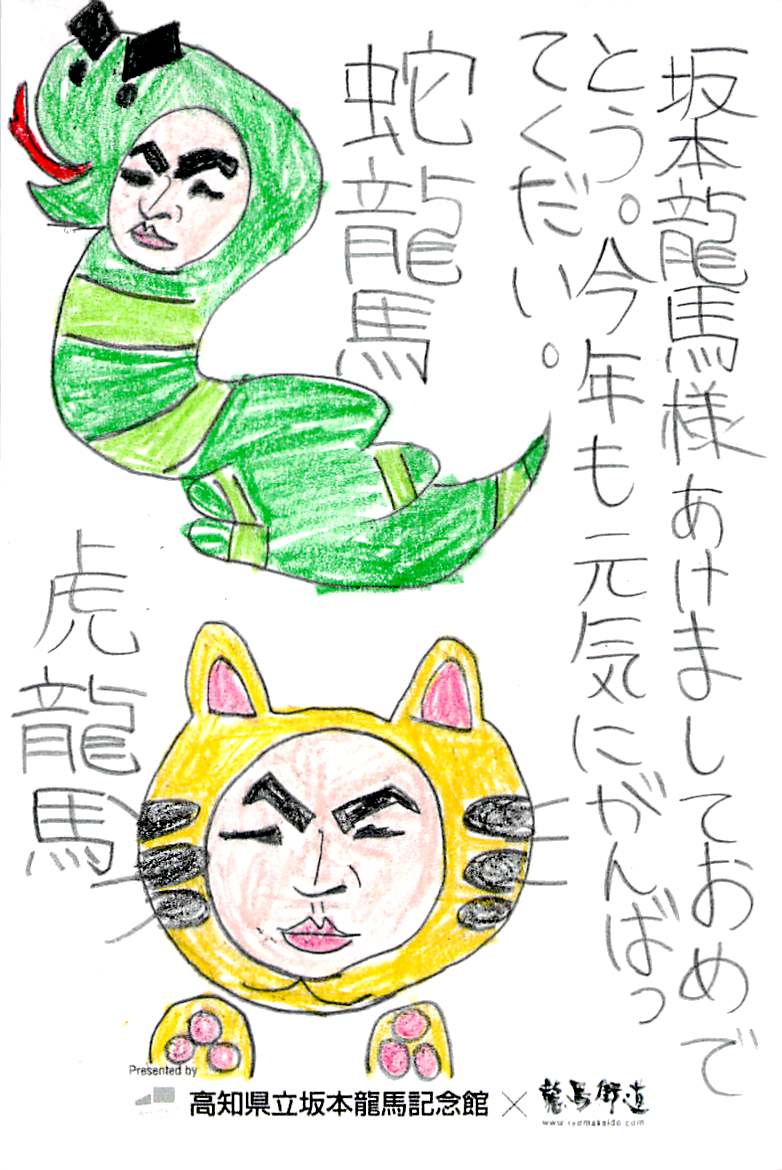 坂本龍馬様あけましておめで
とう。今年も元気にがんばっ
てくだい。
蛇龍馬
虎龍馬
Presented by
高知県立坂本龍馬記念館 × 龍馬街道
www.ryomakaido.com